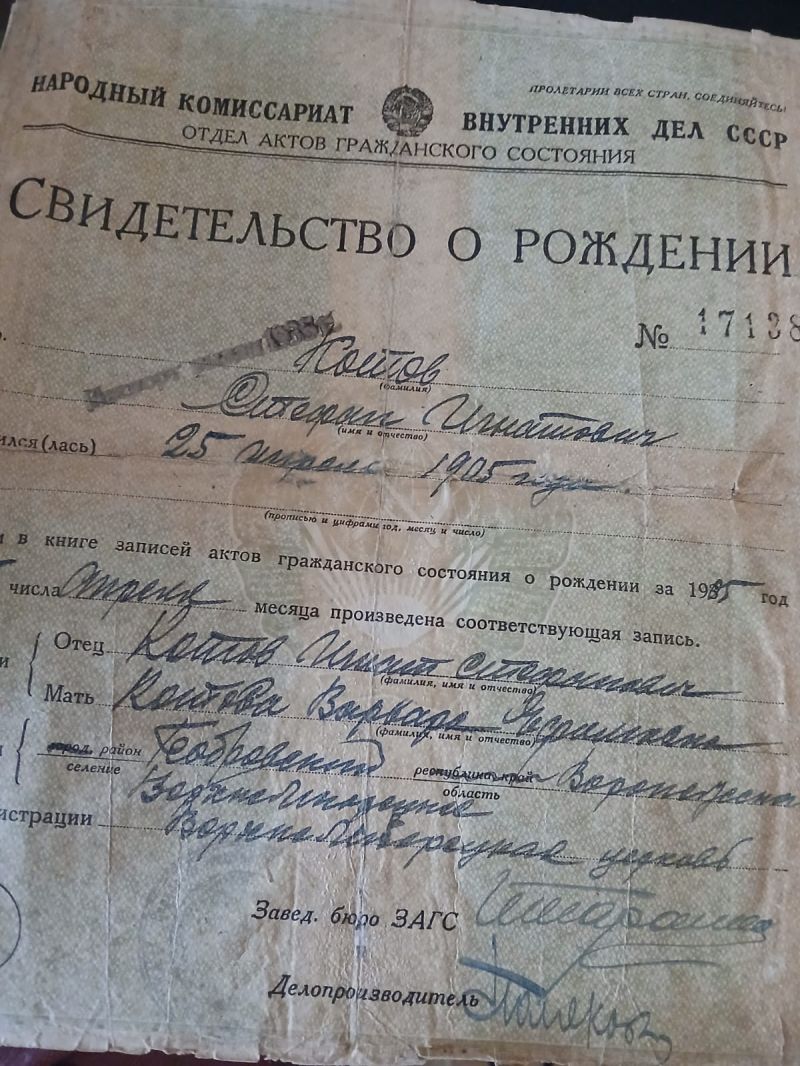 ПРОЛЕТАРИИ ВСЕХ СТРАН, СОЕДИНЯЙТЕСЬ!
НАРОДНЫЙ КОМИССАРИАТ ВНУТРЕННИХ ДЕЛ СССР
ОТДЕЛ АКТОВ ГРАЖДАНСКОГО СОСТОЯНИЯ
СВИДЕТЕЛЬСТВО О РОЖДЕНИИ
№ 17138
Котов
(фамилия)
Стефан Игнатович
(имя и отчество)
ился(лась) 25 апреля 1905 года.
(прописью и цифрами год, месяц и число)
и в книге записей актов гражданского состояния о рождении за 1905 год
числа Апреля месяца произведена соответствующая запись.
и Отец Котов Игнат Стефанович
(фамилия, имя и отчество)
Мать Котова Варвара
(фамилия, имя и отчество)
город, район Бобровский республика край Воронежская
селение область
истрации церковь
Завед. бюро ЗАГС
Делопроизводитель